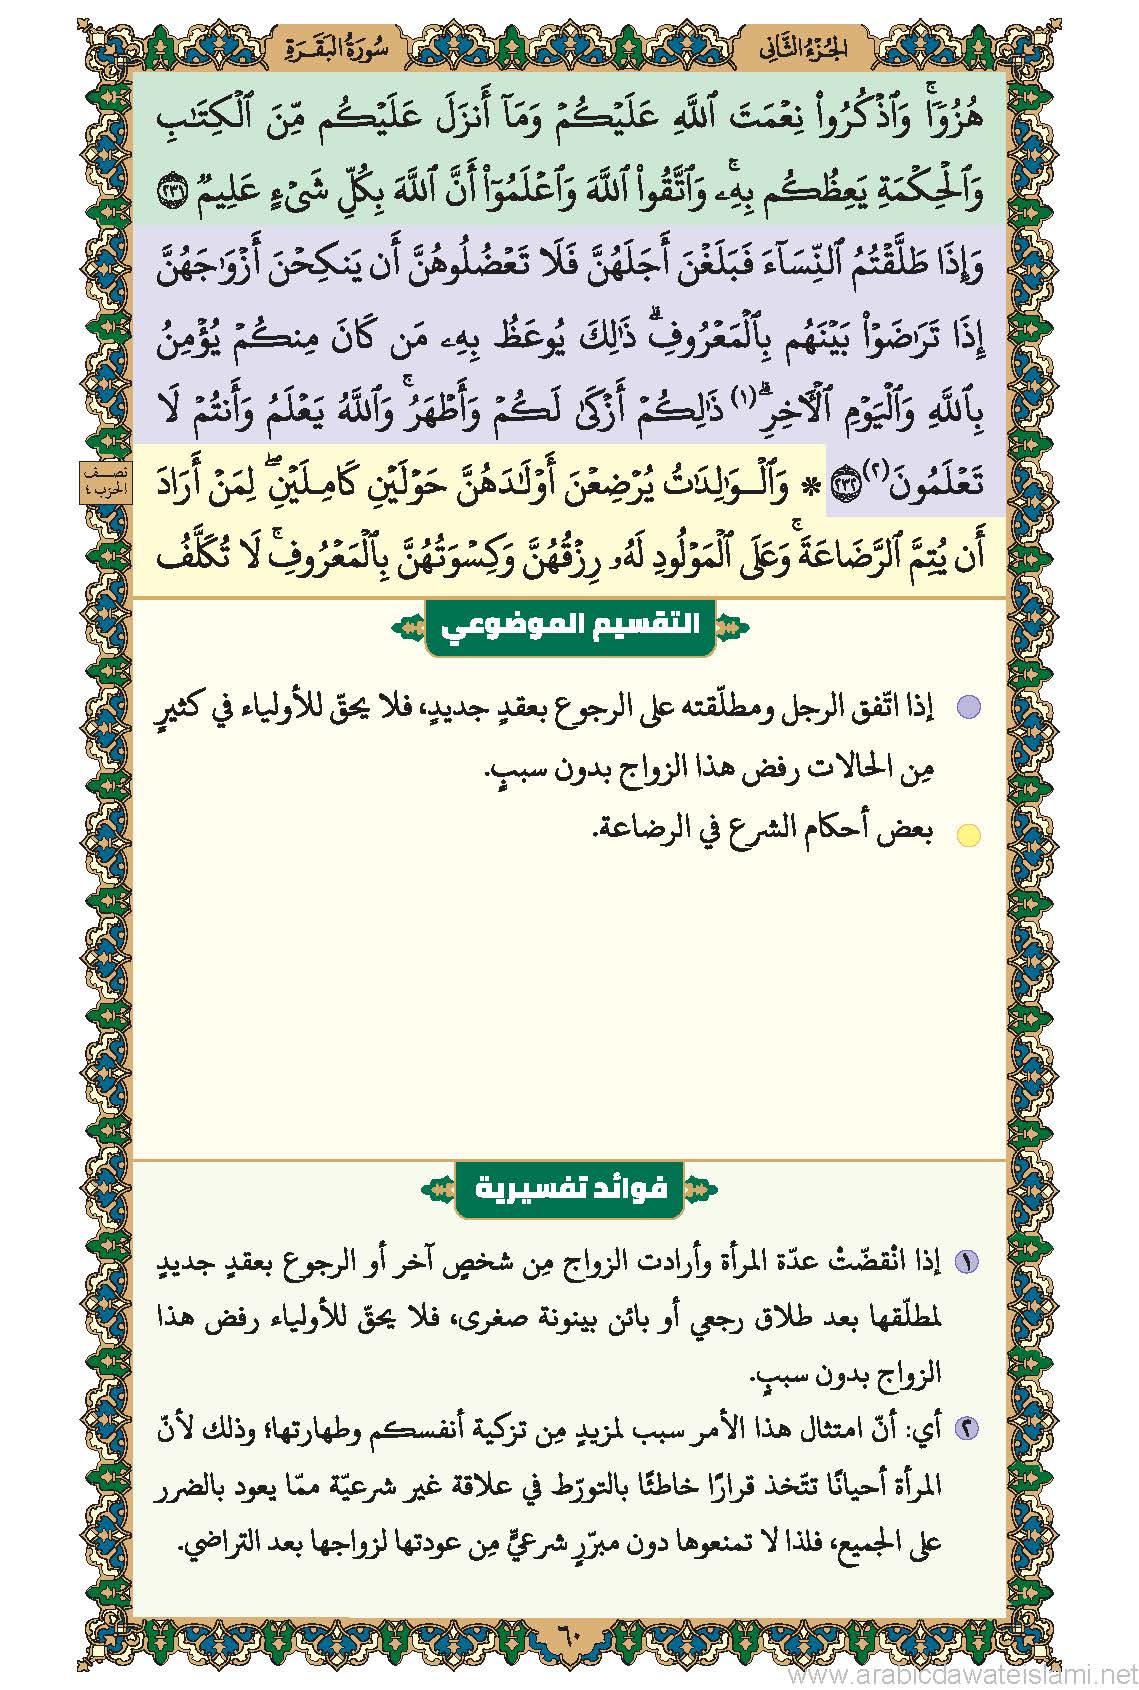 الجُزْءُ الثَّانِي
سُورَةُ البَقَرَةِ
هُزُوٗاۚ وَٱذۡكُرُواْ نِعۡمَتَ ٱللَّهِ عَلَيۡكُمۡ وَمَآ أَنزَلَ عَلَيۡكُم مِّنَ ٱلۡكِتَٰبِ
وَٱلۡحِكۡمَةِ يَعِظُكُم بِهِۦۚ وَٱتَّقُواْ ٱللَّهَ وَٱعۡلَمُوٓاْ أَنَّ ٱللَّهَ بِكُلِّ شَيۡءٍ عَلِيمٞ ٢٣١
وَإِذَا طَلَّقۡتُمُ ٱلنِّسَآءَ فَبَلَغۡنَ أَجَلَهُنَّ فَلَا تَعۡضُلُوهُنَّ أَن يَنكِحۡنَ أَزۡوَٰجَهُنَّ
إِذَا تَرَٰضَوۡاْ بَيۡنَهُم بِٱلۡمَعۡرُوفِۗ ذَٰلِكَ يُوعَظُ بِهِۦ مَن كَانَ مِنكُمۡ يُؤۡمِنُ
بِٱللَّهِ وَٱلۡيَوۡمِ ٱلۡأٓخِرِۗ (١) ذَٰلِكُمۡ أَزۡكَىٰ لَكُمۡ وَأَطۡهَرُۚ وَٱللَّهُ يَعۡلَمُ وَأَنتُمۡ لَا
تَعۡلَمُونَ (٢) ٢٣٢ * وَٱلۡوَٰلِدَٰتُ يُرۡضِعۡنَ أَوۡلَٰدَهُنَّ حَوۡلَيۡنِ كَامِلَيۡنِۖ لِمَنۡ أَرَادَ
نصف
الحزب ٤
أَن يُتِمَّ ٱلرَّضَاعَةَۚ وَعَلَى ٱلۡمَوۡلُودِ لَهُۥ رِزۡقُهُنَّ وَكِسۡوَتُهُنَّ بِٱلۡمَعۡرُوفِۚ لَا تُكَلَّفُ
التقسيم الموضوعي
إذا اتّفق الرجل ومطلّقته على الرجوع بعقدٍ جديدٍ، فلا يحقّ للأولياء في كثيرٍ
مِن الحالات رفض هذا الزواج بدون سببٍ.
بعض أحكام الشرع في الرضاعة.
فوائد تفسيرية
١ إذا انْقضّتْ عدّة المرأة وأرادت الزواج مِن شخصٍ آخر أو الرجوع بعقدٍ جديدٍ
لمطلّقها بعد طلاق رجعي أو بائن بينونة صغرى، فلا يحقّ للأولياء رفض هذا
الزواج بدون سببٍ.
٢ أي: أنّ امتثال هذا الأمر سبب لمزيدٍ مِن تزكية أنفسكم وطهارتها؛ وذلك لأنّ
المرأة أحيانًا تتّخذ قرارًا خاطئًا بالتورّط في علاقة غير شرعيّة ممّا يعود بالضرر
على الجميع، فلذا لا تمنعوها دون مبرّرٍ شرعيٍّ مِن عودتها لزواجها بعد التراضي.
٦٠
www.arabicdawateislami.net